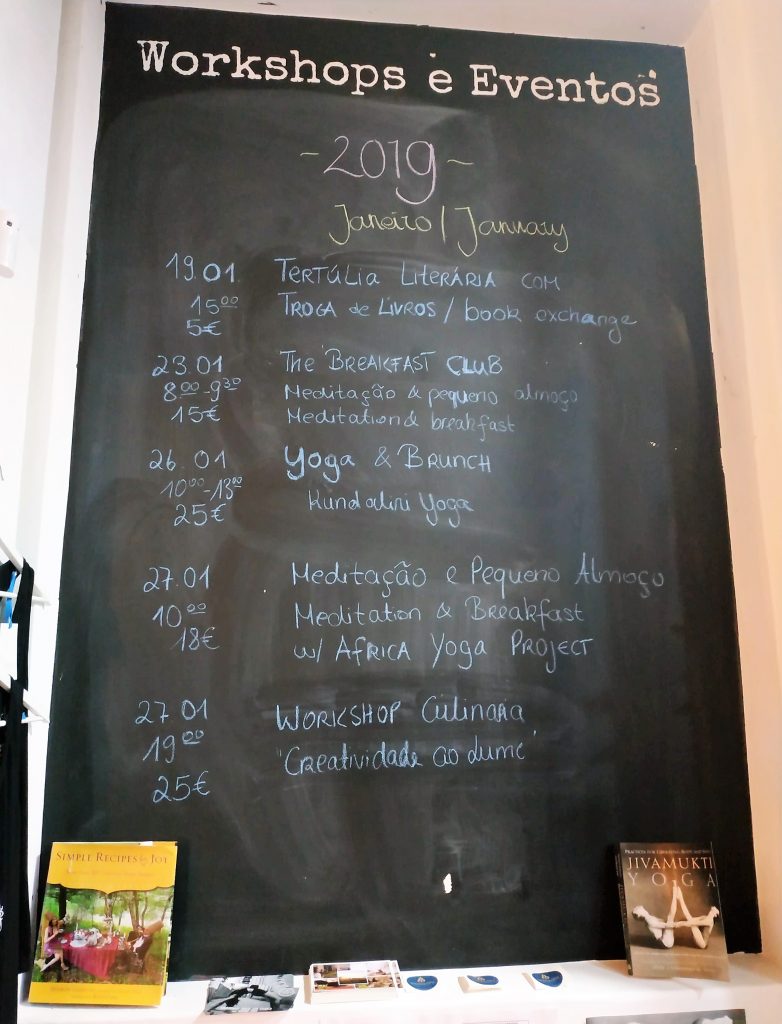 Workshops e Eventos
~ 2019 ~
Janeiro / January
19.01. TERTÚLIA LITERÁRIA COM
15⁰⁰ TROCA de LIVROS / book exchange
5€
23.01 The BREAKFAST CLUB
8⁰⁰-9³⁰ Meditação & pequeno almoço
15€ Meditation & breakfast
26.01 Yoga & BRUNCH
10⁰⁰-13⁰⁰ Kundalini Yoga
25€
27.01 Meditação e Pequeno Almoço
10⁰⁰ Meditation & Breakfast
18€ w/ AFRICA Yoga PROJECT
27.01 WORKSHOP Culinária
19⁰⁰ "Creatividade ao lume"
25€
SIMPLE RECIPES for JOY
JIVAMUKTI
YOGA